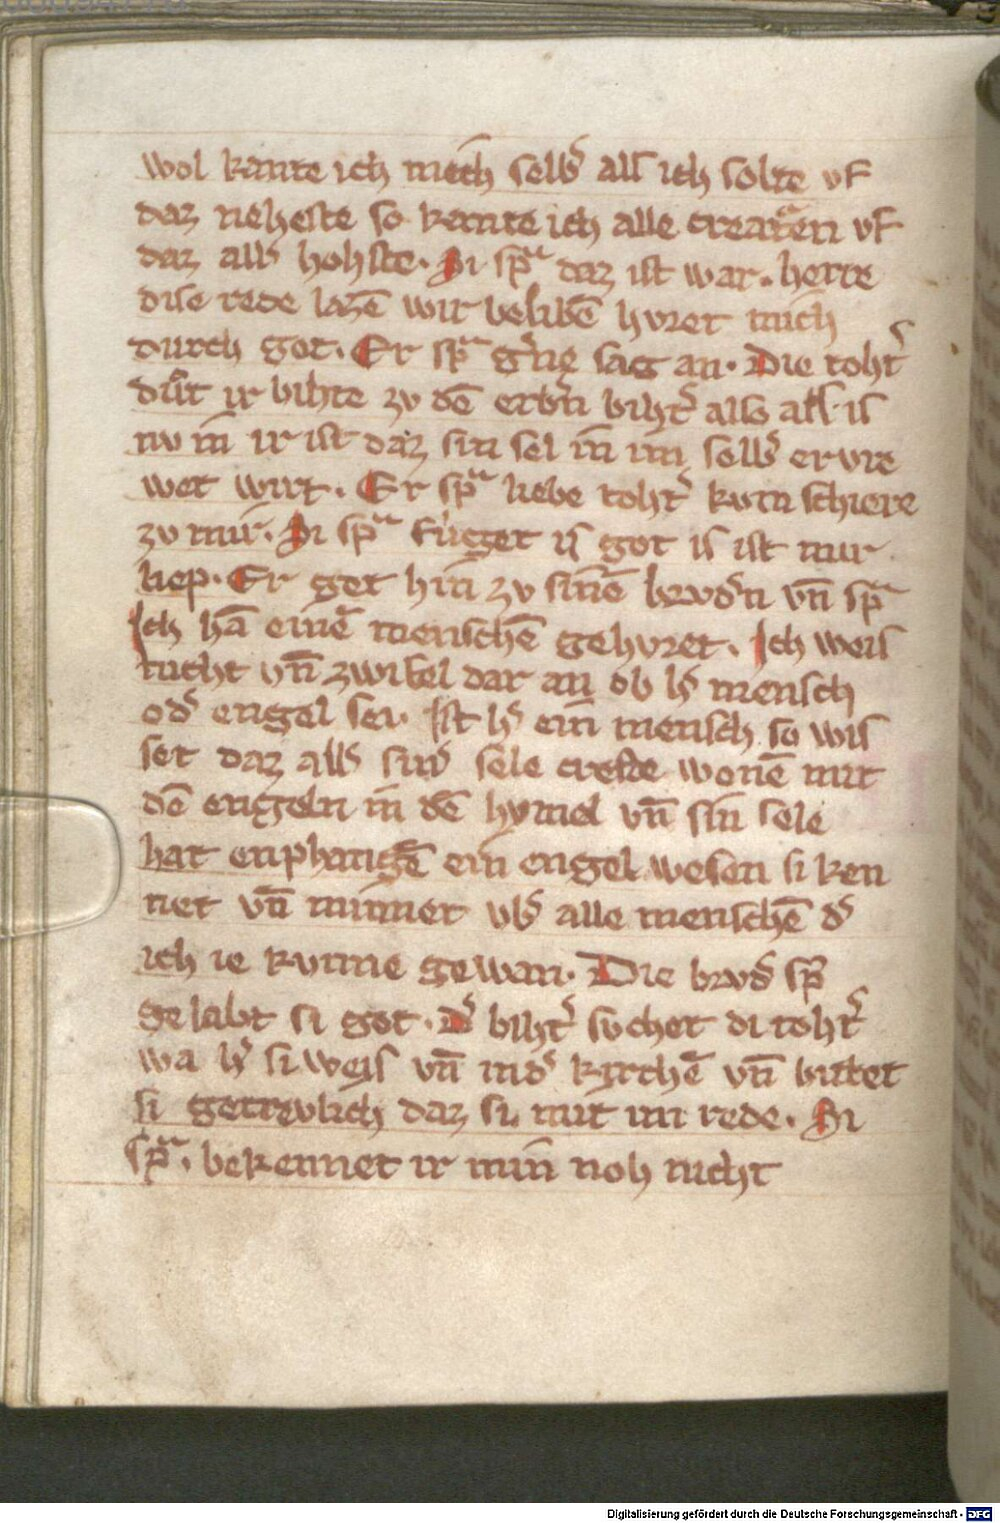 wol kante ich mich selb̾ als ich solte vf
daz neheste so kante ich alle creatᵃen vf
daz all̾ hohste. Si spᵃ daz ist war. herre
dise rede lazē wir belibē hvret mich
durch got. Er spᵃ g̾ne sag an. Die toht̾
dvͦt ir bihte zv dē erb̾n biht̾ also als is
nv in̄ ir ist daz sin sel in̄ im selb̾ ervre
wet wirt. Er spᵃ liebe toht̾ kvm schiere
zv mir. Si spᵃ fuͤget is got is ist mir
liep. Er get hin zv sinē brvd̾n vn̄ spᵃ
Ich hā einē menschē gehvret. Ich weis
nicht vn̄ zwifel dar an ob h̾ mensch
od̾ engel sei. Ist h̾ ein mensch so wis
set daz all̾ sin̾ sele crefte wonē mit
dē engeln in dē hymel vn̄ sin sele
hat enphangē ein engel wesen si ken
net vn̄ minnet vb̾ alle menschē d̾
ich ie kvnne gewan. Die brvd̾ sp̾
gelabt si got. D̾ biht̾ svchet di toht̾
wa h̾ si weis vn̄ ind̾ kyrchē vn̄ bittet
si getrevlich daz si mit im rede. Si
spᵃ. bekennet ir min̄ noh nicht
Digitalisierung gefördert durch die Deutsche Forschungsgemeinschaft - DFG